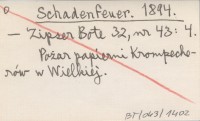 Schadenfeuer. 1894.
– Zipser Bote 32, nr 43: 4.
Pożar papierni Krompecho-
rów w Wielkiej.
BT/043/1402